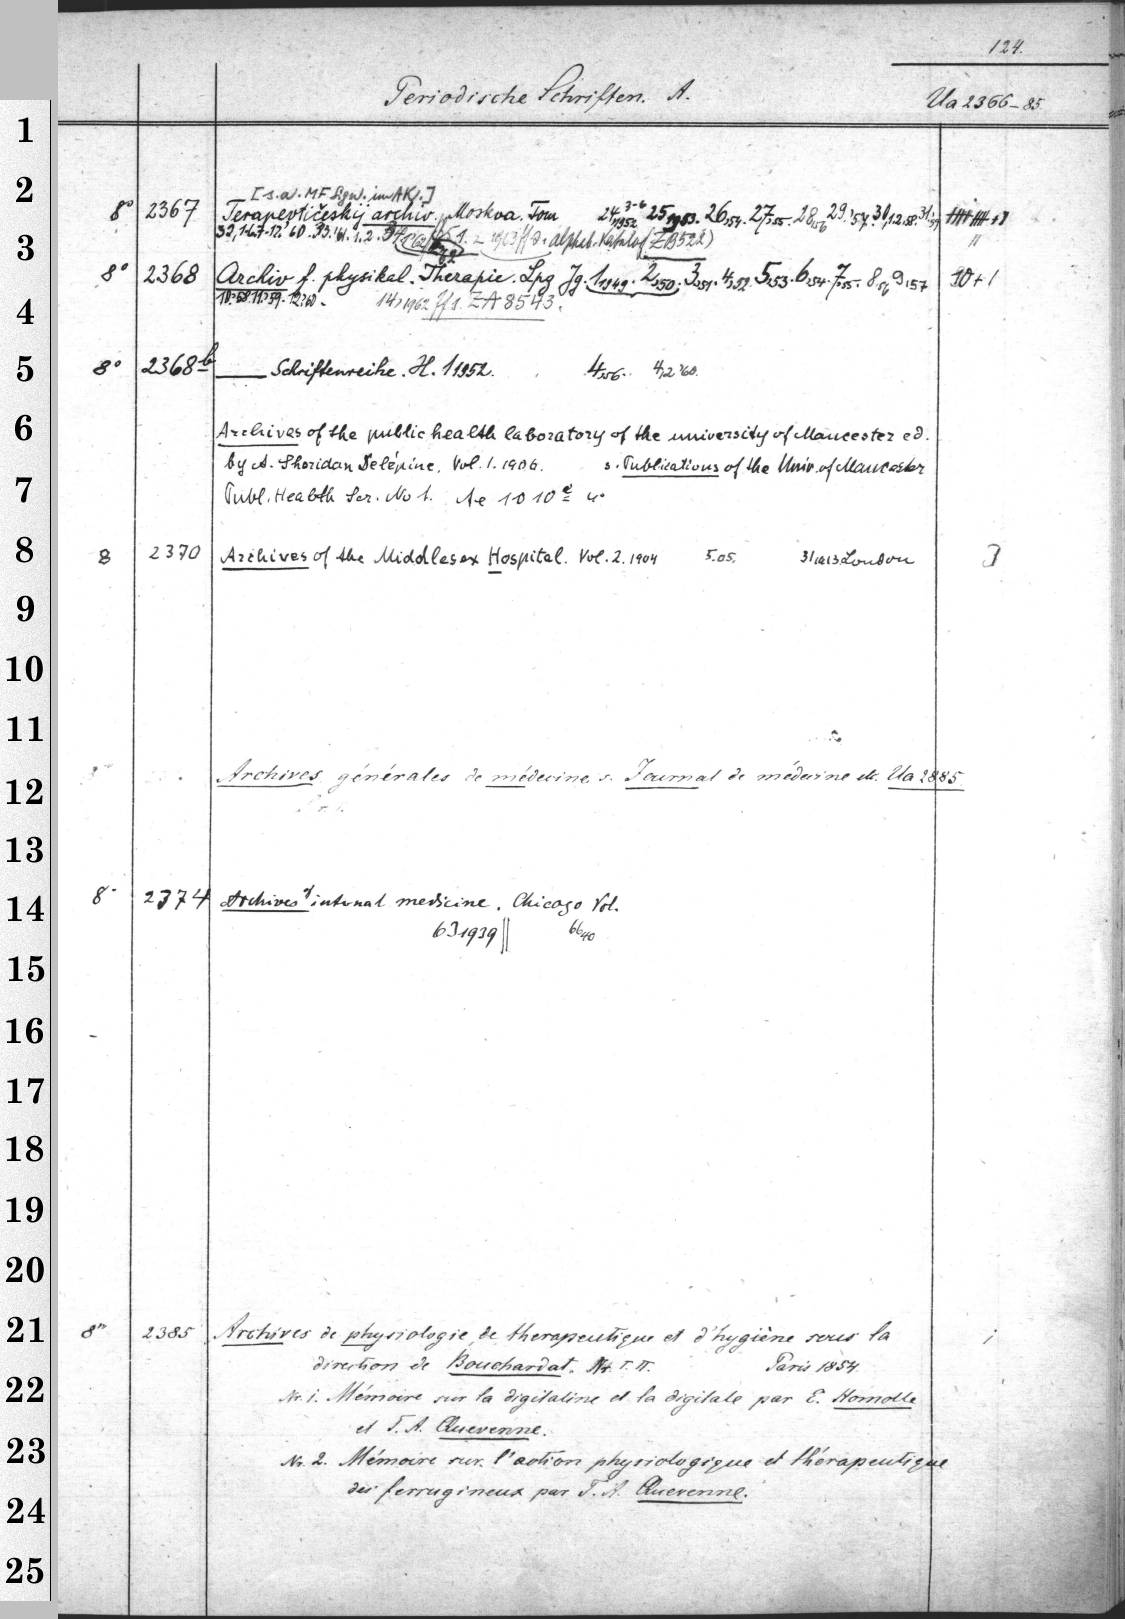 124.
Periodische Schriften. A.
Ua 2366-85
[s.a. MF Sign. im AK.]
8° 2367 Terapevtičeskij archiv. Moskva. Tom 24,1952 3-6 25,1953. 26,54. 27,55. 28,56 29,'57. 30,12.58. 31,'59
32,1-4.7-12 '60. 33.'61. 1.2. 34 1963 ff s. alphab. Katalog (ZB 522)
8° 2368 Archiv f. physikal. Therapie. Lpg Jg. 1,1949. 2,1950. 3,51. 4,52. 5,53. 6,54. 7,55. 8,56 9,57 10+1
10.58. 11.59. 12.60. 14,1962 ff s. ZA 8543.
8° 2368b — Schriftenreihe. H. 1 1952. 4,56. 4,2 '60.
Archives of the public health laboratory of the university of Mancester ed.
by A. Sheridan Delépine. Vol. 1. 1906. s. Publications of the Univ. of Mancester
Publ. Health Ser. No 1. Ae 10 10 e 4°
8 2370 Archives of the Middlesex Hospital. Vol. 2. 1904 5.05. London
Archives générales de médecine s. Journal de médecine etc. Ua 2885.
8° 2374 Archives of internal medicine. Chicago Vol.
63 1939 || 66 40
8° 2385 Archives de physiologie, de therapeutique et d'hygiène sous la
direction de Bouchardat. Nr. I. II. Paris 1854
Nr. 1. Mémoire sur la digitaline et la digitale par E. Homolle
et T. A. Quevenne.
Nr. 2. Mémoire sur l'action physiologique et thérapeutique
des ferrugineux par T. A. Quevenne.
1
2
3
4
5
6
7
8
9
10
11
12
13
14
15
16
17
18
19
20
21
22
23
24
25